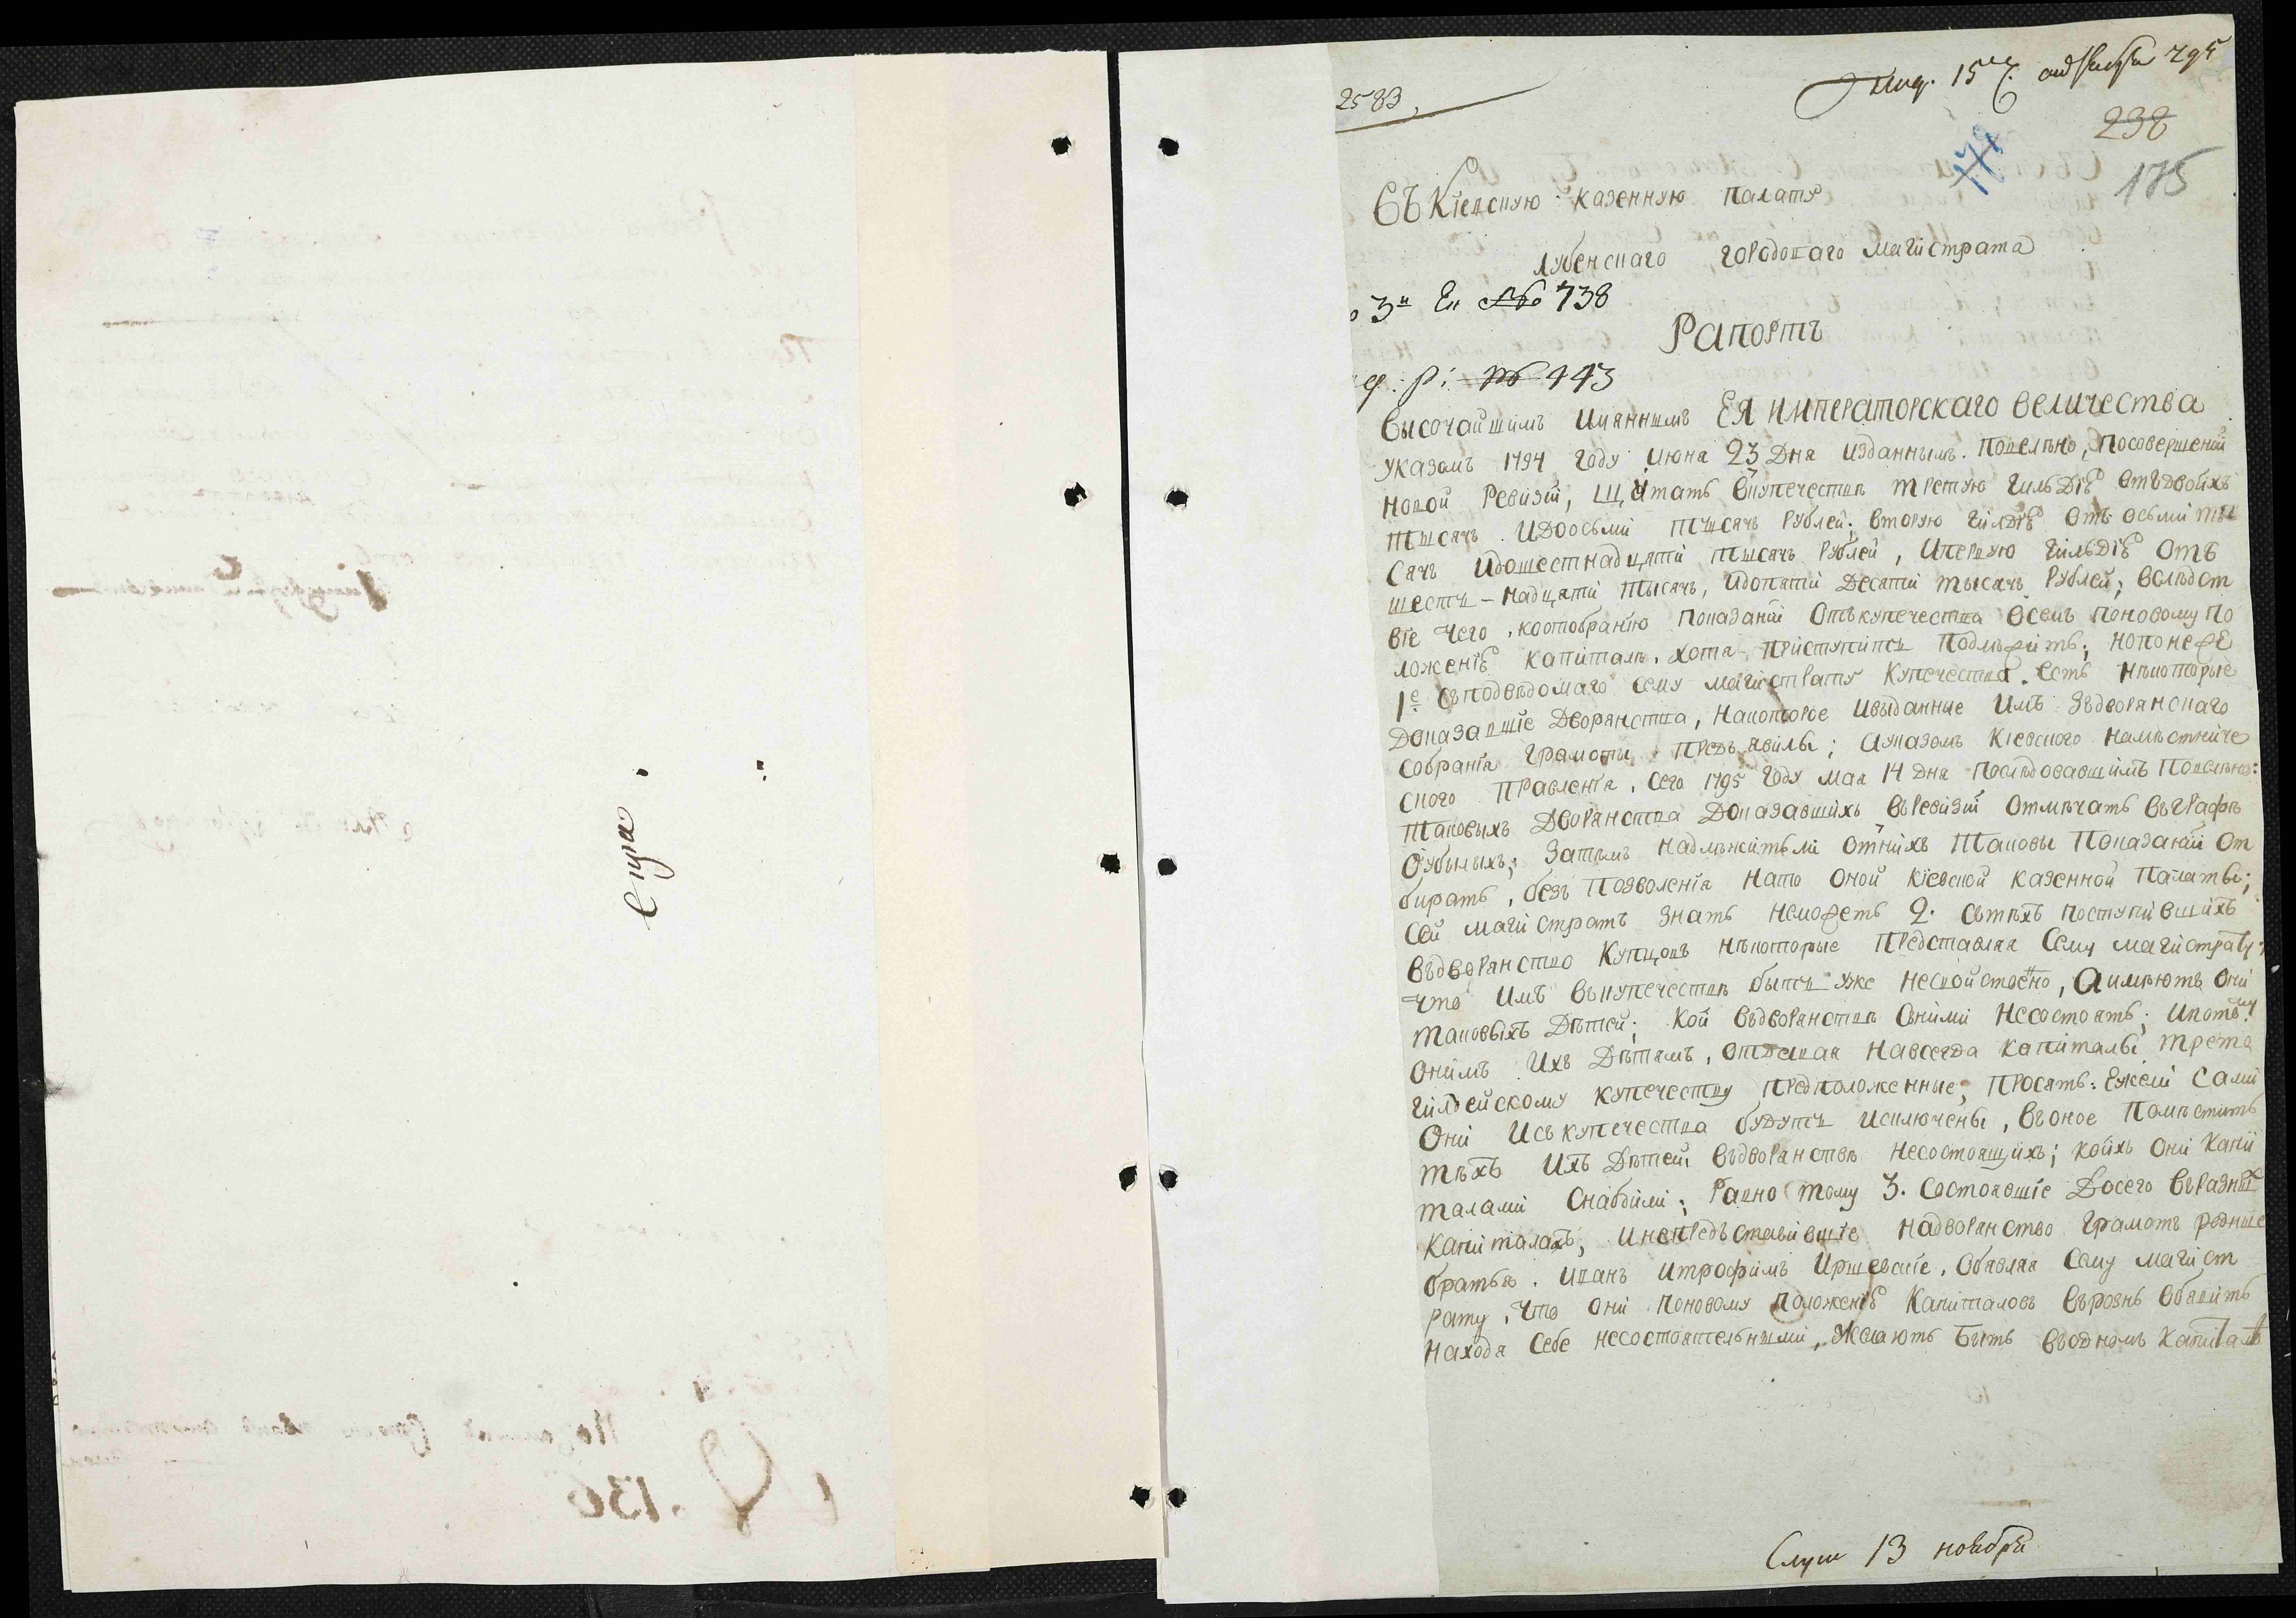 2583,
15 октября 795
238
175
Въ Кіевскую казенную палату
Лубенскаго городоваго магистрата
3й Ек № 738
Рапортъ
№ 443
Высочайшимъ имяннымъ ЕЯ ИМПЕРАТОРСКАГО ВЕЛИЧЕСТВА
указомъ 1794 году июня 23 дня изданнымъ. повелѣно, посовершеніи
новой ревизіи, щитать вкупечествѣ третую гильдію отъдвойхъ
тысячъ идоосьми тысячъ рублей; вторую гилдію отъ осьми ты
сячъ идошестнадцяти тысячъ рублей, ипервую гильдію отъ
шесть-надцяти тысячъ, идопяти десяти тысячъ рублей; вслѣдст
віе чего, коотобранію показаній откупечества осемъ поновому по
ложенію капиталѣ, хотя приступить подлѣжитъ; нопонеже
1е съподвѣдомаго сему магистрату купечества. есть нѣкоторые
доказавшіе дворянства, накоторое ивыданніе имъ здворянскаго
собранія грамоты предъявилы; ауказомъ Кіевского намѣстниче
ского правленія, сего 1795 году мая 14 дня последовавшимъ повелѣно:
таковыхъ дворянства доказавшихъ въревизіи отмѣчать въграфѣ
оубылыхъ; затѣмъ надлѣжитъли отнихъ таковы показаніи от
бирать, безъ позволенія нато оной кіевской казенной палаты;
сей магистратъ знать неможетъ 2. сътѣхъ поступившихъ
въдворянство купцовъ нѣкоторые представляя сему магистрату,
что имъ вкупечествѣ быть уже несвойственно, аимѣютъ они
таковыхъ дѣтей; кои въдворянствѣ сними несостоятъ; ипотому
онимъ ихъ дѣтямъ, отдавая навсегда капиталы третѣ
гилдейскому купечеству предположенные, просятъ: ежели сами
они изъ купечества будутъ исключены, въоное помѣстить
тѣхъ ихъ дѣтей въдворянствѣ несостоящихъ; койхъ они капи
талами снабдили; равно тому 3. состоявшіе досего въразныхъ
капиталахъ, инепредъставившіе надворянство грамотъ родные
братья. иванъ итрофимъ, объявляя сему магист
рату, что они поновому положенію капиталовъ върознь объявить
находя себе несостоятельными, желаютъ быть въодномъ капиталѣ
Слуш 13 ноября